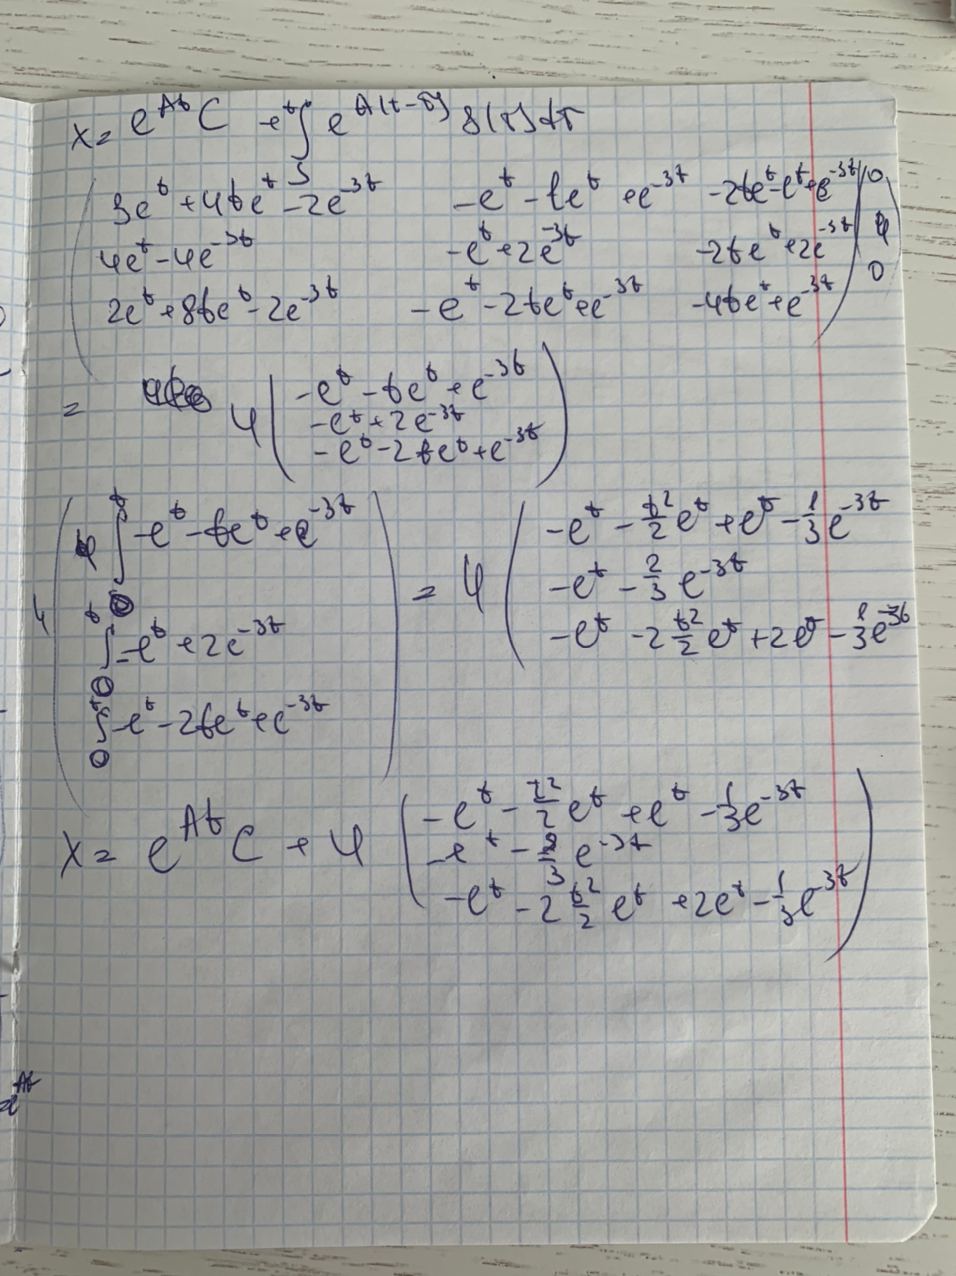 x = e^{At} C + ∫ e^{A(t-τ)} g(τ) dτ
3e^t + 4te^t - 2e^{-3t}   -e^t - te^t + e^{-3t}   -2te^t - e^t + e^{-3t}   0
4e^t - 4e^{-3t}   -e^t + 2e^{-3t}   -2te^t + 2e^{-3t}   4
2e^t + 8te^t - 2e^{-3t}   -e^t - 2te^t + e^{-3t}   -4te^t + e^{-3t}   0
= 4 ( -e^t - te^t + e^{-3t}
-e^t + 2e^{-3t}
-e^t - 2te^t + e^{-3t} )
4 ( ∫_0^t -e^t - te^t + e^{-3t}
∫_0^t -e^t + 2e^{-3t}
∫_0^t -e^t - 2te^t + e^{-3t} )
= 4 ( -e^t - t^2/2 e^t + e^t - 1/3 e^{-3t}
-e^t - 2/3 e^{-3t}
-e^t - 2 t^2/2 e^t + 2e^t - 1/3 e^{-3t} )
x = e^{At} C + 4 ( -e^t - t^2/2 e^t + e^t - 1/3 e^{-3t}
-e^t - 2/3 e^{-3t}
-e^t - 2 t^2/2 e^t + 2e^t - 1/3 e^{-3t} )
e^{At}